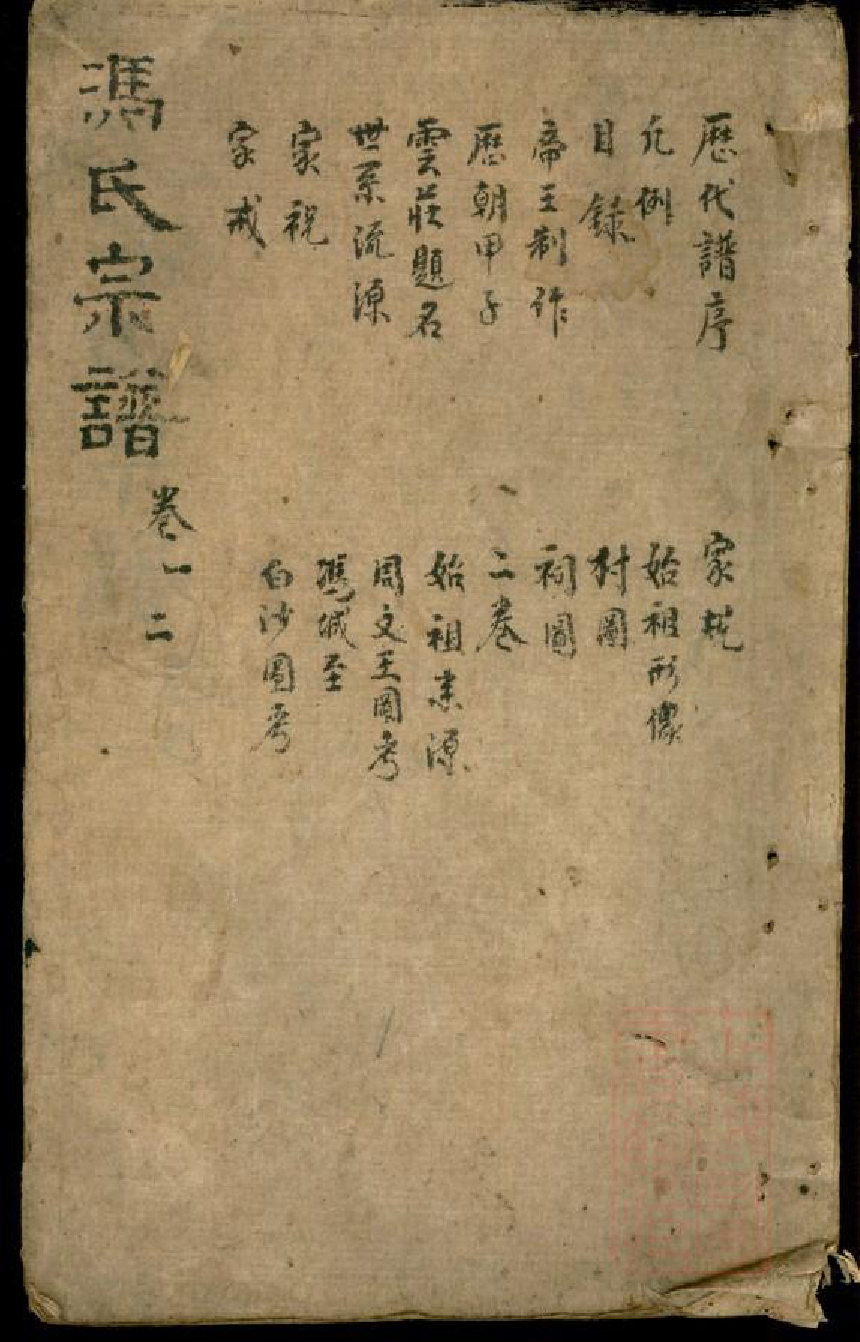 歷代譜序
凡例
目録
帝王制作
歷朝甲子
雲莊題名
世系流源
家祝
家戒
家
始祖形像
村圖
祠圖
二卷
始祖來源
周文王圖考
馮城至
白沙圖考
馮氏宗譜
卷一二